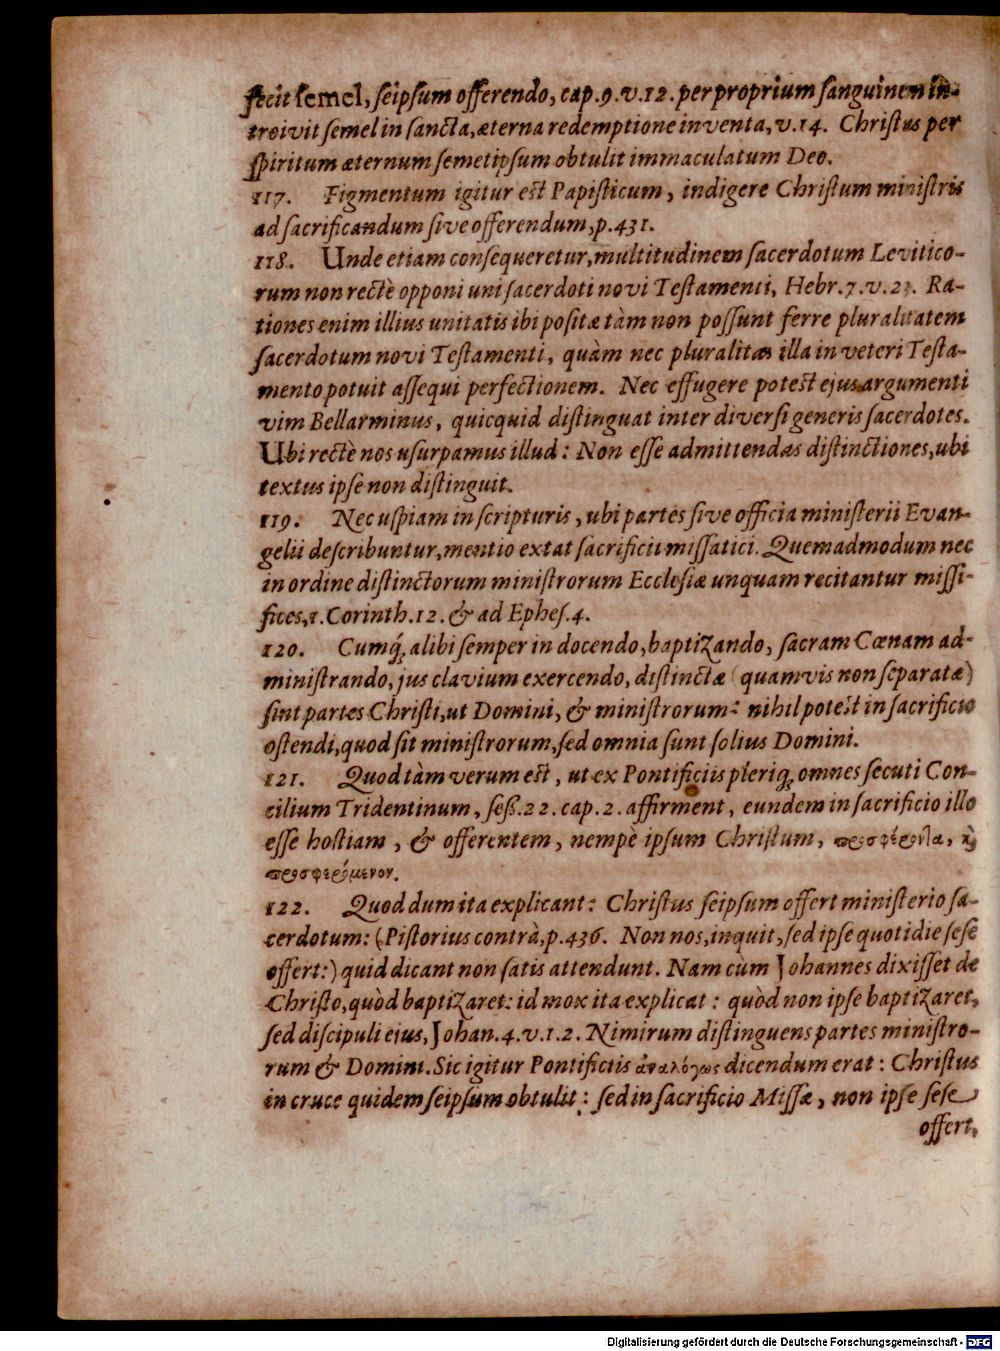 fecit semel, seipsum offerendo, cap.9.v.12. per proprium sanguinem in-
troivit semel in sancta, æterna redemptione inventa, v.14. Christus per
spiritum æternum semetipsum obtulit immaculatum Deo.
117. Figmentum igitur est Papisticum, indigere Christum ministris
ad sacrificandum sive offerendum, p.431.
118. Unde etiam consequeretur, multitudinem sacerdotum Levitico-
rum non rectè opponi uni sacerdoti novi Testamenti, Hebr.7.v.23. Ra-
tiones enim illius unitatis ibi positæ tàm non possunt ferre pluralitatem
sacerdotum novi Testamenti, quàm nec pluralitas illa in veteri Testa-
mento potuit assequi perfectionem. Nec effugere potest ejus argumenti
vim Bellarminus, quicquid distinguat inter diversi generis sacerdotes.
Ubi rectè nos usurpamus illud: Non esse admittendas distinctiones, ubi
textus ipse non distinguit.
119. Nec uspiam in scripturis, ubi partes sive officia ministerii Evan-
gelii describuntur, mentio extat sacrificii missatici. Quemadmodum nec
in ordine distinctorum ministrorum Ecclesiæ unquam recitantur missi-
fices, 1. Corinth.12. & ad Ephes.4.
120. Cumq́; alibi semper in docendo, baptizando, sacram Cœnam ad-
ministrando, jus clavium exercendo, distinctæ (quamvis non separatæ)
sint partes Christi, ut Domini, & ministrorum: nihil potest in sacrificio
ostendi, quod sit ministrorum, sed omnia sunt solius Domini.
121. Quod tàm verum est, ut ex Pontificiis pleriq; omnes secuti Con-
cilium Tridentinum, seß.22. cap.2. affirment, eundem in sacrificio illo
esse hostiam, & offerentem, nempè ipsum Christum, προσφέροντα, ϗ̀
προσφερόμενον.
122. Quod dum ita explicant: Christus seipsum offert ministerio sa-
cerdotum: (Pistorius contrà, p.436. Non nos, inquit, sed ipse quotidie sese
offert:) quid dicant non satis attendunt. Nam cùm Johannes dixisset de
Christo, quòd baptizaret: id mox ita explicat: quòd non ipse baptizaret,
sed discipuli ejus, Johan.4.v.1.2. Nimirum distinguens partes ministro-
rum & Domini. Sic igitur Pontificiis ἀναλόγως dicendum erat: Christus
in cruce quidem seipsum obtulit: sed in sacrificio Missæ, non ipse sese
offert,
Digitalisierung gefördert durch die Deutsche Forschungsgemeinschaft - DFG